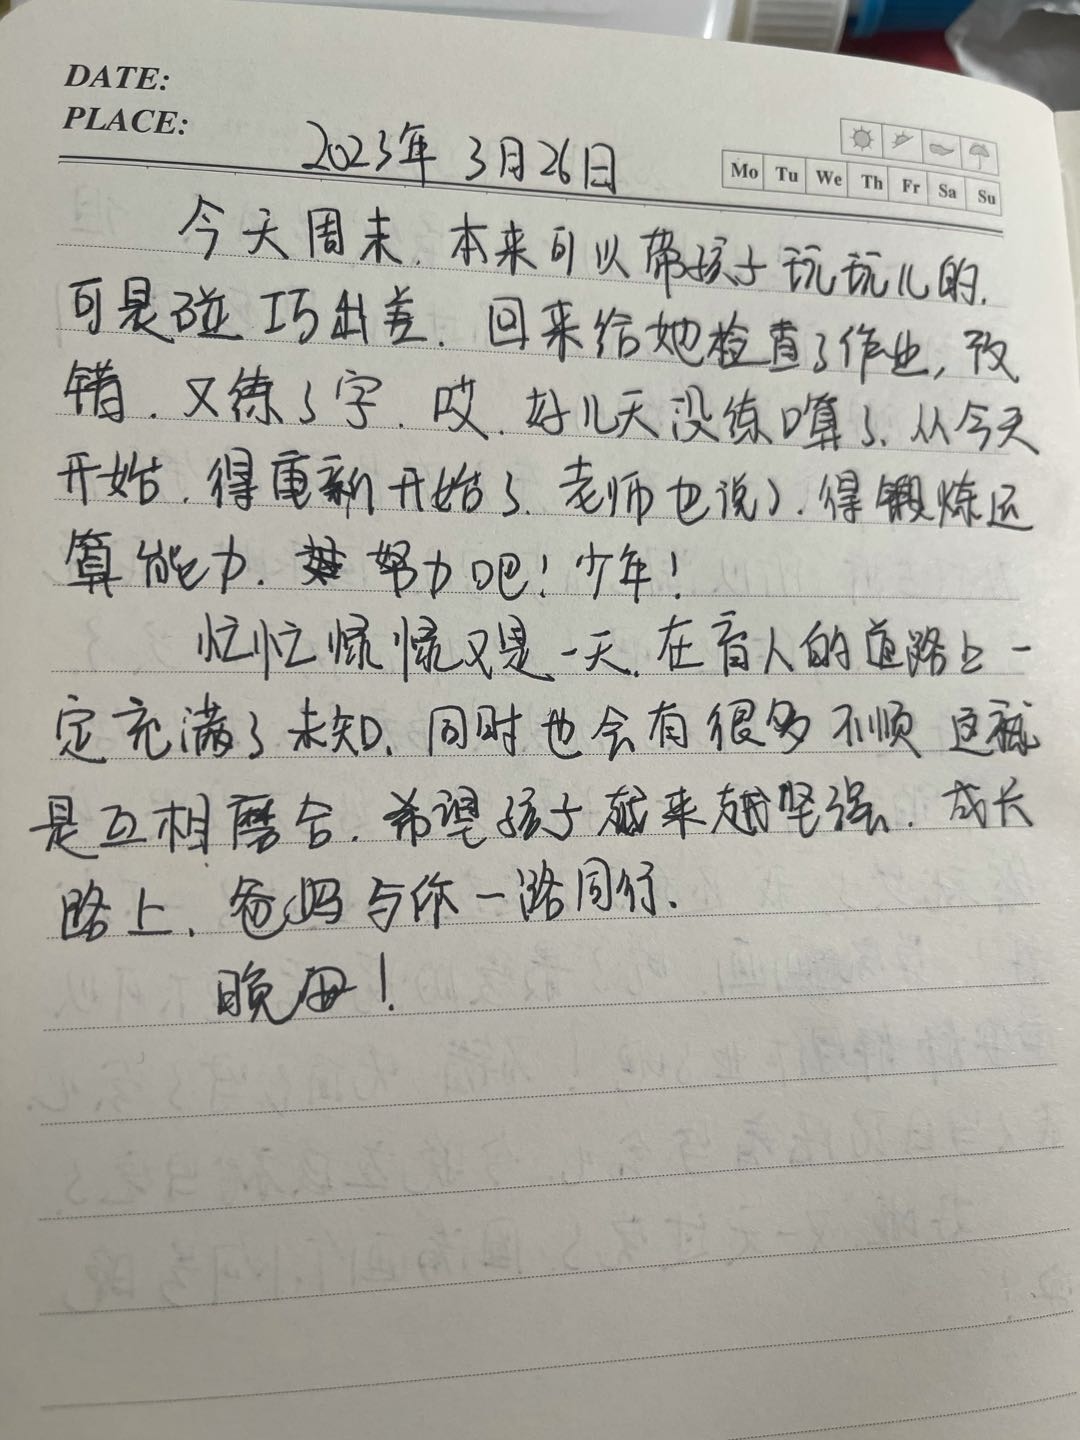 DATE:
PLACE:
2023年 3月26日
Mo Tu We Th Fr Sa Su
今天周末.本来可以带孩子玩玩儿的.
可是碰巧出差.回来给她检查了作业,改
错.又练了字.哎.好几天没练口算了.从今天
开始.得重新开始了.老师也说了.得锻炼运
算能力.努力吧!少年!
忙忙慌慌又是一天.在育人的道路上一
定充满了未知.同时也会有很多不顺 这就
是互相磨合.希望孩子越来越坚强.成长
路上.爸妈与你一路同行.
晚安!